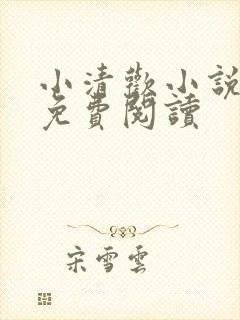 小清歡小說
免費閱讀
宋雪雲